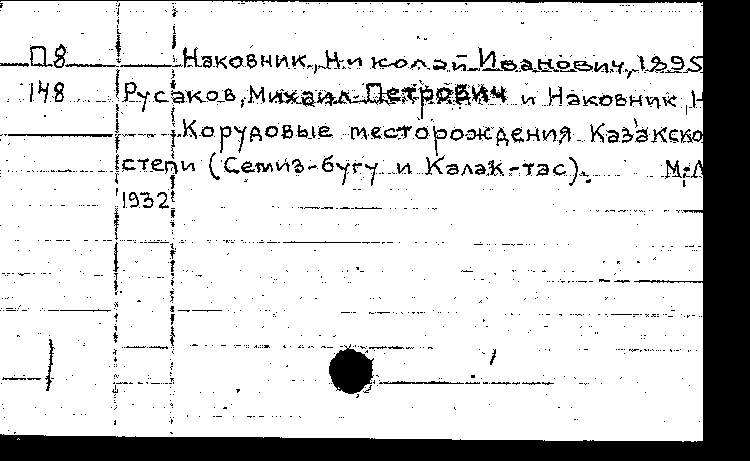 П8 Наковник, Николай Иванович, 1895
148 Русаков, Михаил Петрович и Наковник, Н
Корудовые месторождения Казакско
степи (Семиз-бугу и Калак-тас). М.-Л
1932